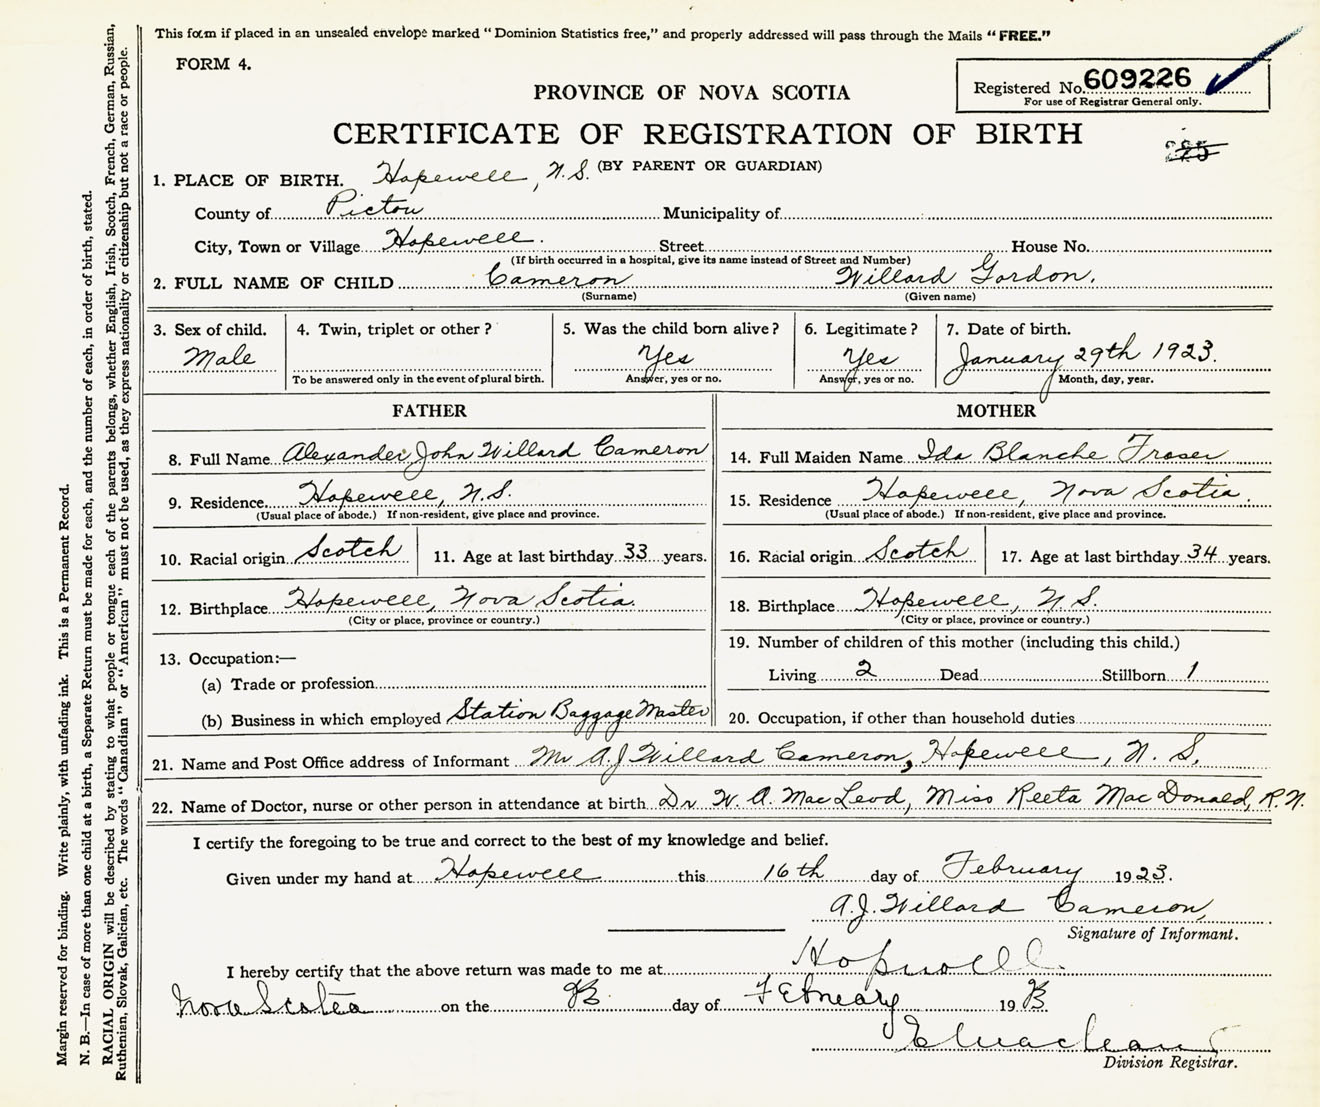 This form if placed in an unsealed envelope marked "Dominion Statistics free," and properly addressed will pass through the Mails "FREE."
FORM 4.
Registered No. 609226
For use of Registrar General only.
PROVINCE OF NOVA SCOTIA
CERTIFICATE OF REGISTRATION OF BIRTH
(BY PARENT OR GUARDIAN)
1. PLACE OF BIRTH. Hopewell, N.S.
County of Pictou Municipality of
City, Town or Village Hopewell. Street House No.
(If birth occurred in a hospital, give its name instead of Street and Number)
2. FULL NAME OF CHILD Cameron Willard Gordon.
(Surname) (Given name)
3. Sex of child. 4. Twin, triplet or other? 5. Was the child born alive? 6. Legitimate? 7. Date of birth.
Male Yes Yes January 29th 1923.
To be answered only in the event of plural birth. Answer, yes or no. Answer, yes or no. Month, day, year.
FATHER
8. Full Name Alexander John Willard Cameron
9. Residence Hopewell, N.S.
(Usual place of abode.) If non-resident, give place and province.
10. Racial origin Scotch 11. Age at last birthday 33 years.
12. Birthplace Hopewell, Nova Scotia.
(City or place, province or country.)
13. Occupation:—
(a) Trade or profession
(b) Business in which employed Station Baggage Master
MOTHER
14. Full Maiden Name Ida Blanche Fraser
15. Residence Hopewell, Nova Scotia.
(Usual place of abode.) If non-resident, give place and province.
16. Racial origin Scotch 17. Age at last birthday 34 years.
18. Birthplace Hopewell, N.S.
(City or place, province or country.)
19. Number of children of this mother (including this child.)
Living 2 Dead Stillborn 1
20. Occupation, if other than household duties
21. Name and Post Office address of Informant Mr A.J Willard Cameron, Hopewell, N.S.
22. Name of Doctor, nurse or other person in attendance at birth Dr W. A. MacLeod, Miss Reeta MacDonald, R.N.
I certify the foregoing to be true and correct to the best of my knowledge and belief.
Given under my hand at Hopewell this 16th day of February 1923.
A.J. Willard Cameron,
Signature of Informant.
I hereby certify that the above return was made to me at Hopwell
Nova Scotia on the day of February 19
Division Registrar.
Margin reserved for binding. Write plainly, with unfading ink. This is a Permanent Record.
N. B.—In case of more than one child at a birth, a Separate Return must be made for each, and the number of each, in order of birth, stated.
RACIAL ORIGIN will be described by stating to what people or tongue each of the parents belongs, whether English, Irish, Scotch, French, German, Russian,
Ruthenian, Slovak, Galician, etc. The words "Canadian" or "American" must not be used, as they express nationality or citizenship but not a race or people.